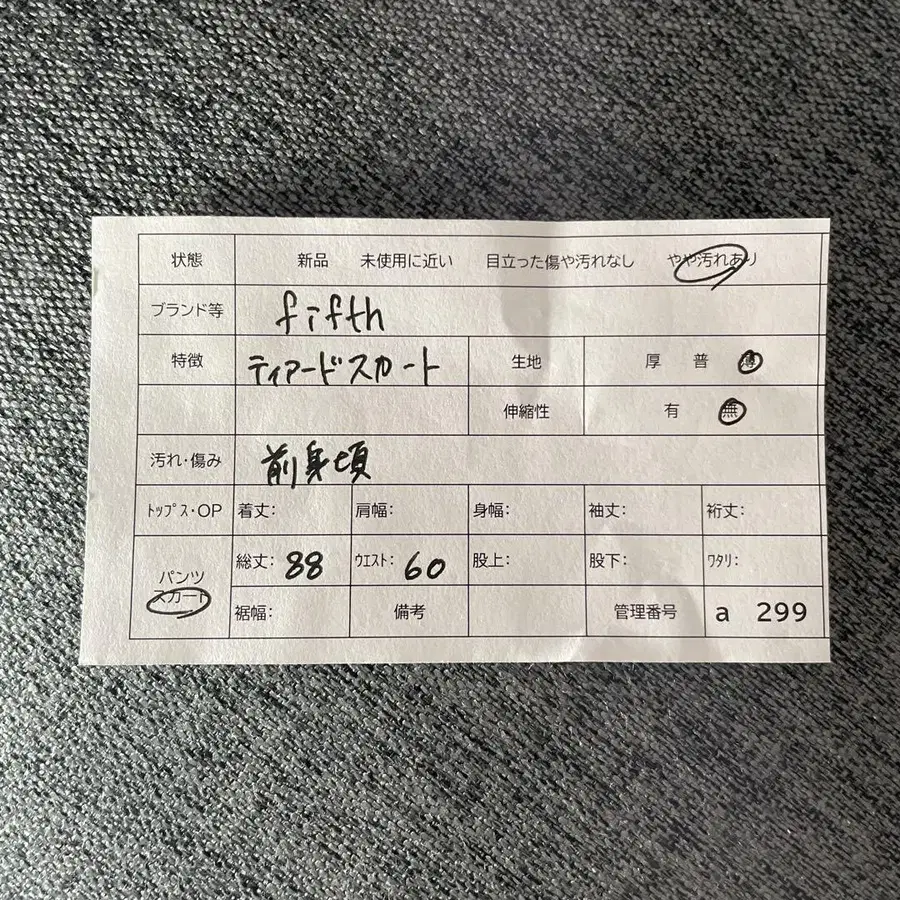 状態 新品 未使用に近い 目立った傷や汚れなし やや汚れあり
ブランド等 fifth
特徴 ティアードスカート 生地 厚 普 薄
伸縮性 有 無
汚れ・傷み 前身頃
トップス・OP 着丈: 肩幅: 身幅: 袖丈: 裄丈:
パンツ 総丈: 88 ウエスト: 60 股上: 股下: ワタリ:
スカート 裾幅: 備考 管理番号 a 299